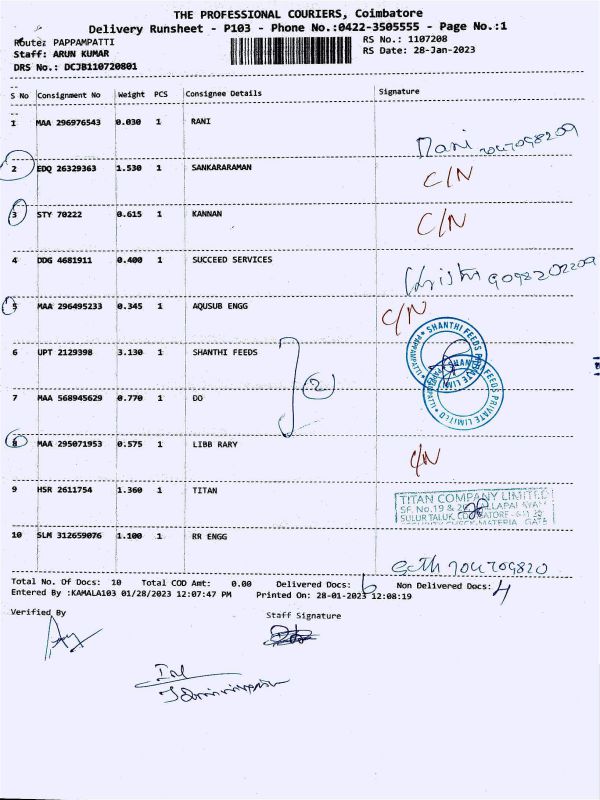 THE PROFESSIONAL COURIERS, Coimbatore
Delivery Runsheet - P103 - Phone No.:0422-3505555 - Page No.:1
Route: PAPPAMPATTI
RS No.: 1107208
Staff: ARUN KUMAR
RS Date: 28-Jan-2023
DRS No.: DCJB110720801
S No Consignment No Weight PCS Consignee Details Signature
1 MAA 296976543 0.030 1 RANI
Rani 7047098209
2 EDQ 26329363 1.530 1 SANKARARAMAN C/N
3 STY 70222 0.615 1 KANNAN C/N
4 DDG 4681911 0.400 1 SUCCEED SERVICES
9098202209
5 MAA 296495233 0.345 1 AQUSUB ENGG C/N
6 UPT 2129398 3.130 1 SHANTHI FEEDS
SHANTHI FEEDS PRIVATE LIMITED
2
7 MAA 568945629 0.770 1 DO
FEEDS PRIVATE LIMITED
8 MAA 295071953 0.575 1 LIBB RARY C/N
9 HSR 2611754 1.360 1 TITAN
TITAN COMPANY LIMITED
SF. No.19 &
SULUR TALUK, COIMBATORE
SECURITY CHECK-MATERIA GATE
10 SLM 312659076 1.100 1 RR ENGG
Total No. Of Docs: 10 Total COD Amt: 0.00 Delivered Docs: 6 Non Delivered Docs: 4
Entered By :KAMALA103 01/28/2023 12:07:47 PM Printed On: 28-01-2023 12:08:19
Verified By
Staff Signature